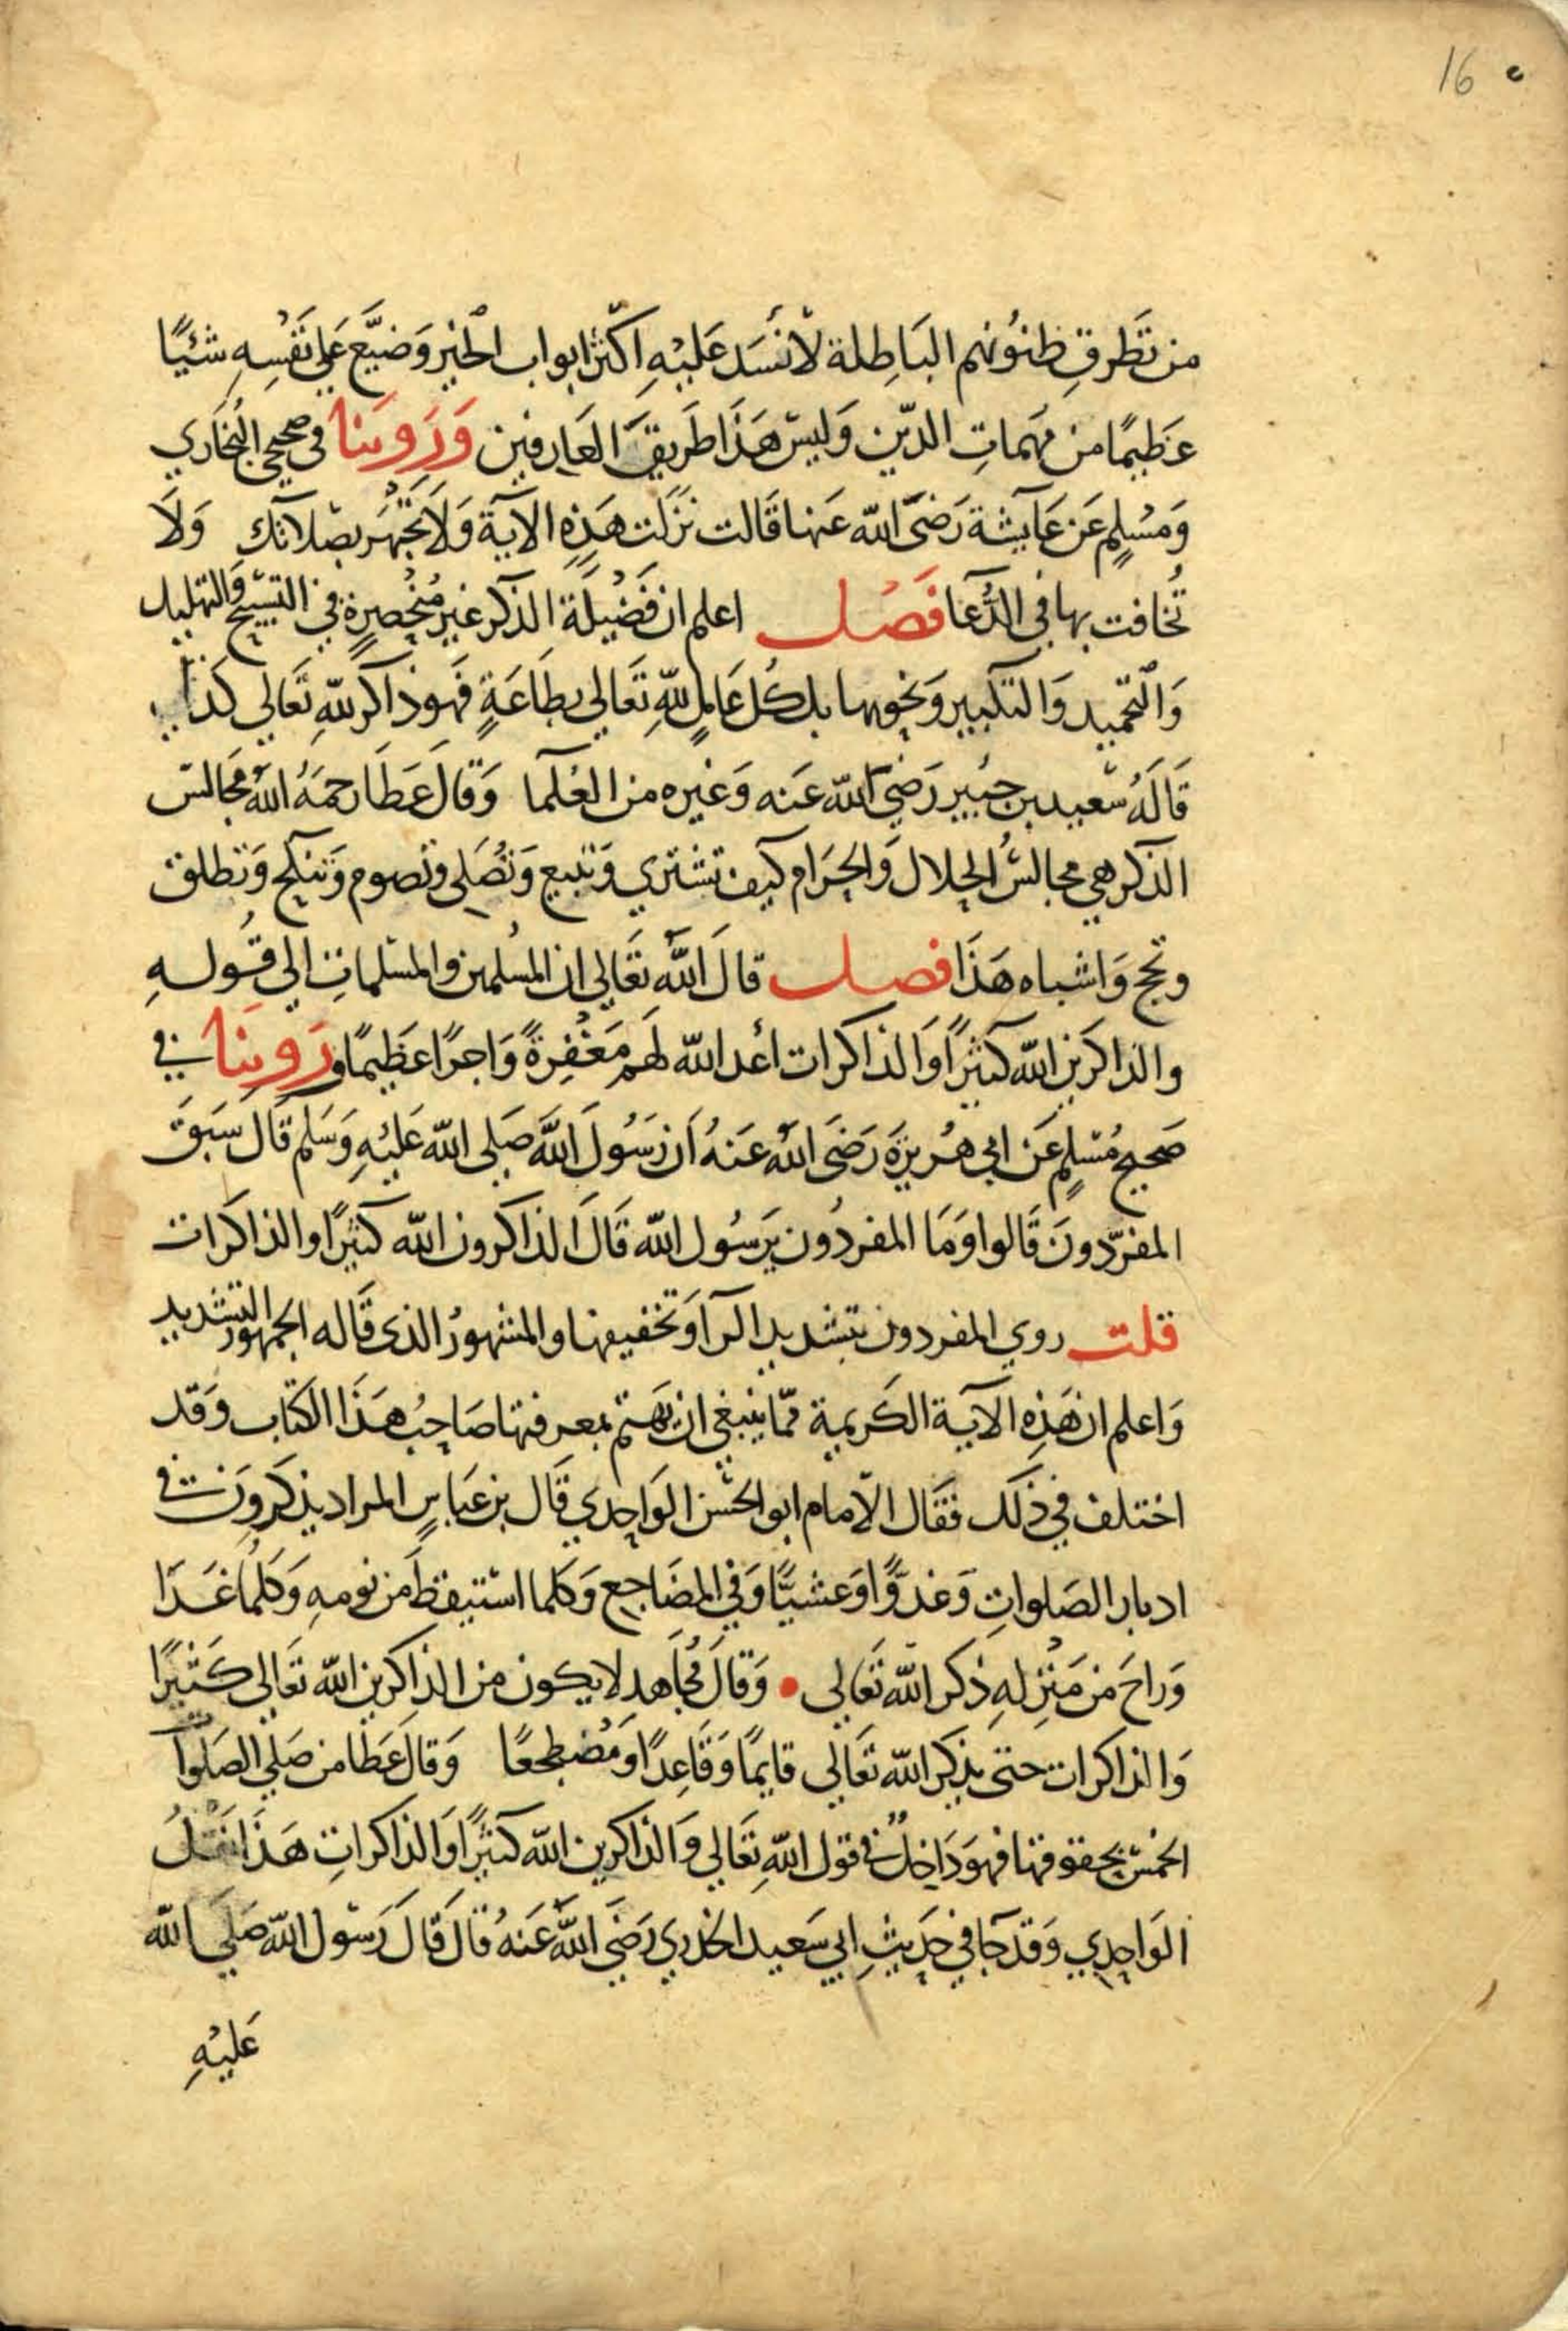 16
من تَطَرقِ ظنوُنهم البَاطِلة لاَ نسَد عَليْهِ اكثر ابواب الخير وَضيَّع عَلي نَفْسِهِ شيئًا
عَظيمًا من مُهماتِ الدّين وَليسَ هَذَا طَريقَ العَارفين وَرَوينا في صحيحي البُخَاري
وَمُسْلمٍ عَن عَايشة رَضَى الله عَنها قَالت نزَلت هَذِهِ الآية وَلاَ تَجْهَر بصَلاتك وَلاَ
تُخافت بها في الدُّعا فَصْل اعلم ان فَضيْلَة الذكر غير مُنْحَصِرةٍ في التسبيح والتهليل
وَالتحميد وَالتكبير وَنحوها بل كُل عَامِلٍ للهِ تَعَالي بطَاعَةٍ فَهوَ ذاكر للهِ تَعَالي كذا
قَالَهُ سَعيد بن جبُير رَضيَ الله عَنه وَغيره من العُلَما وَقَالَ عَطَا رحمَهُ اللهُ مَجَالسَ
الذكر هي مجالسُ الحلال وَالحرَام كيف تشتري وَتبيع وَتُصَلي وتصوم وَتنكح وَتطلق
وتحج وَاشباه هَذَا فصل قالَ اللهُ تعَالي ان المُسْلمين والمسْلماتِ الي قوُلهِ
والذاكرَين الله كثيرًا وَالذاكرات أعد الله لهَم مَغْفِرةً وَاجرًا عَظيمًا ورَوينَا في
صَحيح مُسْلمٍ عَن ابي هُرَيرَة رَضَى اللهُ عَنهُ اَن رَسُولَ اللهَ صَلي الله عَليْهِ وَسَلم قَال سَبَقَ
المفرّدونَ قَالوا وَمَا المفردُون يَرسُول الله قَالَ الذاكرون الله كثيرًا والذاكرَات
قلت روي المفردون بتشديد الرآ وَتخفيفها والمشهورُ الذي قَاله الجمهور التشديد
وَاعلم ان هَذِهِ الآية الكَريمة ممّا ينبغي ان يَهتم بمعرفتها صَاحِبُ هَذَا الكتاب وَقد
اختلف في ذلَك فقَال الاِمام ابو الحسَن الوَاحدي قَال بن عَباسٍ المراد يذكرَونَ في
ادبار الصَلواتِ وَغدوًّا وَعشيًّا وَفي المضَاجع وَكلما استيقظَ من نومهِ وَكلمُا غَدَا
وَراحَ من مَنْزِلهِ ذكر الله تَعَالي • وَقَالَ مُجاَهد لا يكون من الذاكرين الله تَعَالي كَثيرًا
وَالذاكرات حتى يذكر الله تَعَالي قايمًا وَقَاعِدًا وَمُضْطجعًا وَقالَ عَطَا من صَلي الصَلَوَا
الخمسَ بحقوقها فهوَ دَاخلٌ في قول اللهِ تعَالي وَالذاكرين الله كثيرًا وَالذاكراتِ هَذَا نقلُ
الوَاحدي وَقدجَا في حَديثِ ابي سَعيد الخدري رَضيَ اللهَ عَنهُ قالَ قَالَ رَسوُل الله صَلَي الله
عَليْهِ